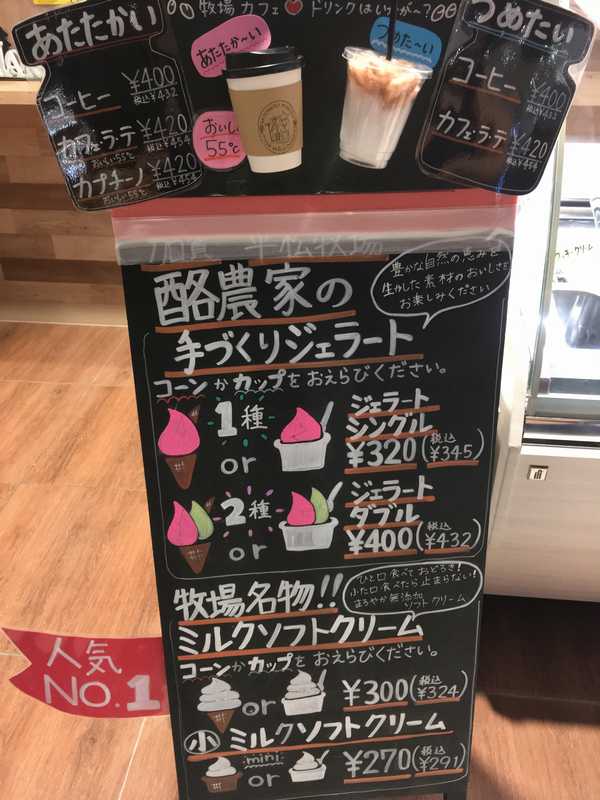 牧場カフェ♥ドリンクはいかが〜?
あたたかい
コーヒー ¥400
税込¥432
カフェラテ ¥420
おいしい55℃ 税込¥454
カプチーノ ¥420
おいしい55℃ 税込¥454
あたたか〜い
おいしい
55℃
つめた〜い
つめたい
コーヒー ¥400
税込¥432
カフェラテ ¥420
税込¥454
加賀 平松牧場
酪農家の
豊かな自然の恵みを
生かした素材のおいしさを
お楽しみください
手づくりジェラート
コーンかカップをおえらびください。
1種
or
ジェラート
シングル
¥320(税込¥345)
2種
or
ジェラート
ダブル
¥400(税込¥432)
牧場名物!!
ひと口食べておどろき!
ふた口食べたら止まらない!
まろやか無添加
ソフトクリーム
ミルクソフトクリーム
コーンかカップをおえらびください。
or
¥300(税込¥324)
小 ミルクソフトクリーム
mini
or
¥270(税込¥291)
人気
NO.1